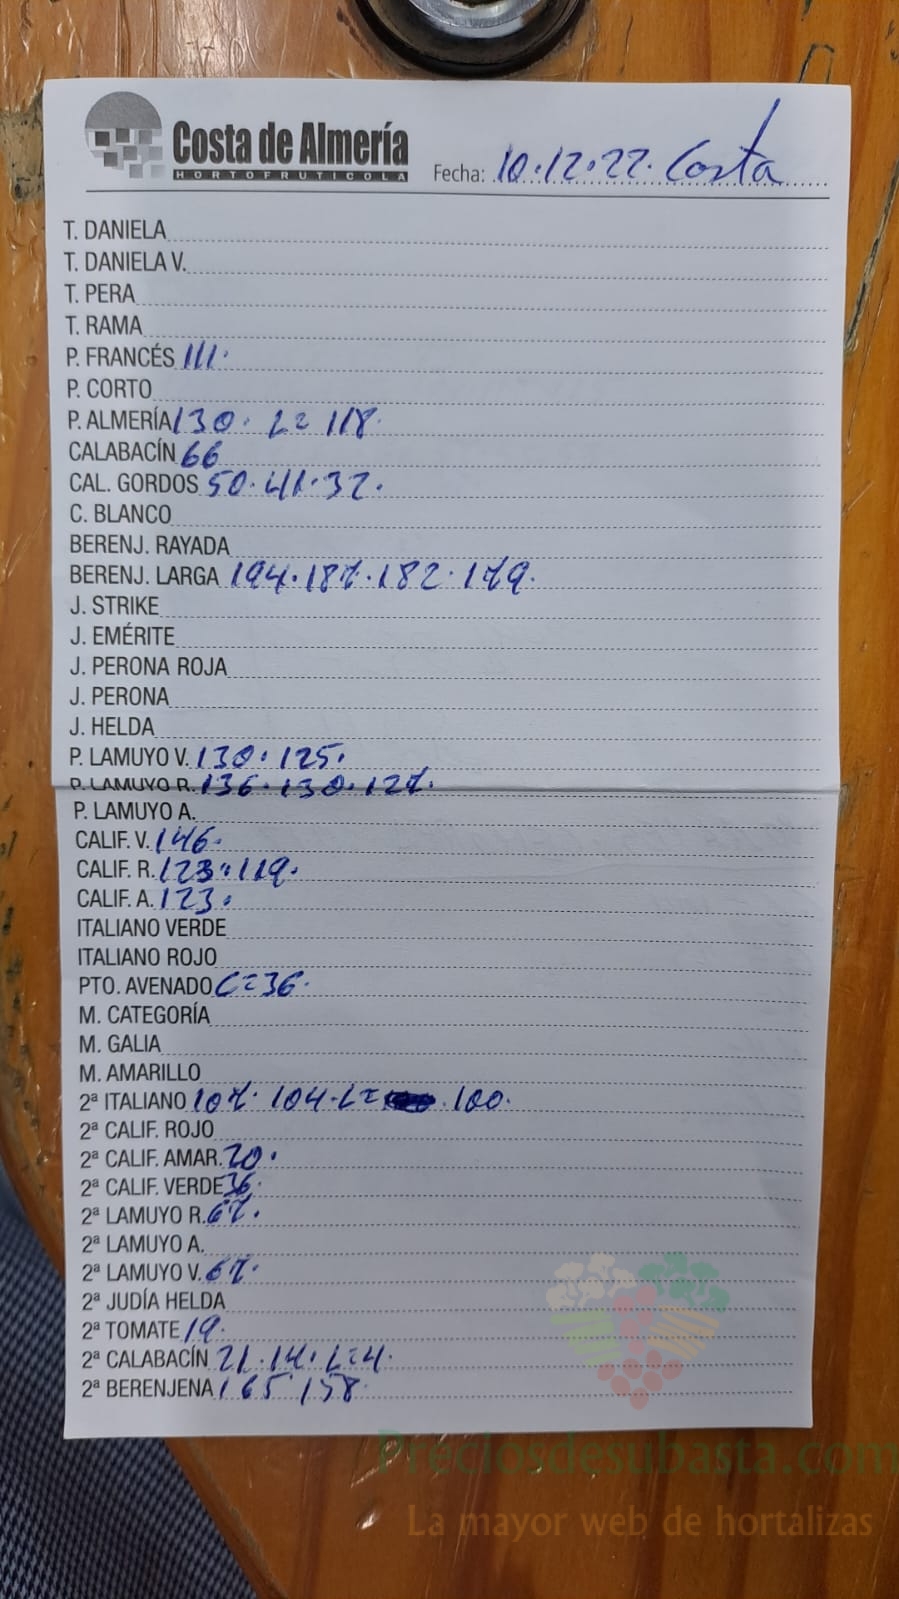 Costa de Almería
HORTOFRUTICOLA
Fecha: 10.12.22. Costa
T. DANIELA
T. DANIELA V.
T. PERA
T. RAMA
P. FRANCÉS 111.
P. CORTO
P. ALMERÍA 130. L= 118.
CALABACÍN 66
CAL. GORDOS 50.41.32.
C. BLANCO
BERENJ. RAYADA
BERENJ. LARGA 194.187.182.179.
J. STRIKE
J. EMÉRITE
J. PERONA ROJA
J. PERONA
J. HELDA
P. LAMUYO V. 130.125.
P. LAMUYO R. 136.130.127.
P. LAMUYO A.
CALIF. V. 146.
CALIF. R. 123.119.
CALIF. A. 123.
ITALIANO VERDE
ITALIANO ROJO
PTO. AVENADO C=36.
M. CATEGORÍA
M. GALIA
M. AMARILLO
2ª ITALIANO 107. 104. L= .100.
2ª CALIF. ROJO
2ª CALIF. AMAR. 20.
2ª CALIF. VERDE 36.
2ª LAMUYO R. 67.
2ª LAMUYO A.
2ª LAMUYO V. 67.
2ª JUDÍA HELDA
2ª TOMATE 19.
2ª CALABACÍN 21.14. L=4.
2ª BERENJENA 165 158.
Preciosdesubasta.com
La mayor web de hortalizas